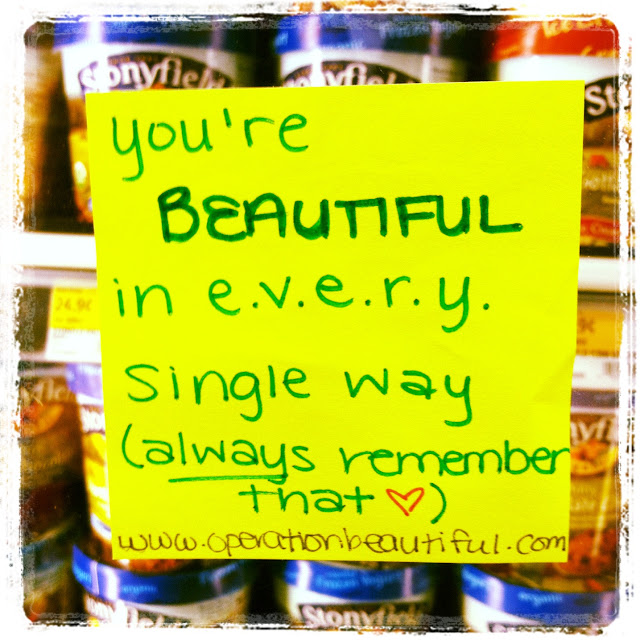 Stonyfield Stonyfield St
you're
BEAUTIFUL
in e.v.e.r.y.
single way
(always remember
that ♡)
www.operationbeautiful.com
Stonyfield